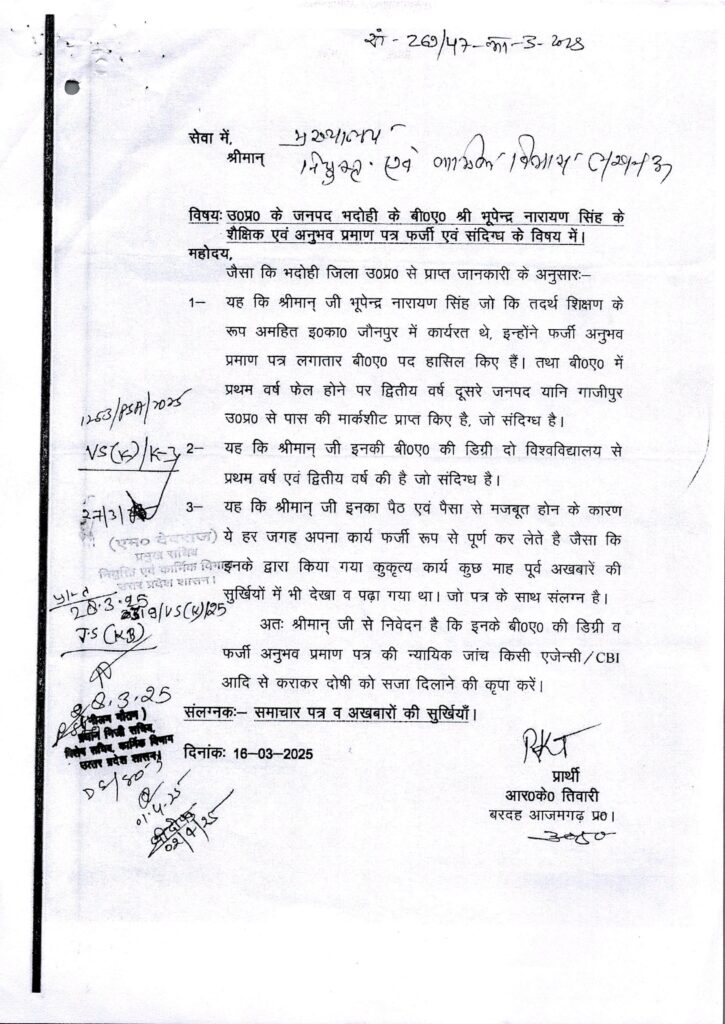 सं - 269/47-का-3-2025
सेवा में,
मुख्यालय
श्रीमान्
नियुक्ति एवं कार्मिक विभाग
विषयः उ0प्र0 के जनपद भदोही के बी0ए0 श्री भूपेन्द्र नारायण सिंह के
शैक्षिक एवं अनुभव प्रमाण पत्र फर्जी एवं संदिग्ध के विषय में।
महोदय,
जैसा कि भदोही जिला उ0प्र0 से प्राप्त जानकारी के अनुसारः–
1– यह कि श्रीमान् जी भूपेन्द्र नारायण सिंह जो कि तदर्थ शिक्षण के
रूप अमहित इ0का0 जौनपुर में कार्यरत थे, इन्होंने फर्जी अनुभव
प्रमाण पत्र लगातार बी0ए0 पद हासिल किए हैं। तथा बी0ए0 में
प्रथम वर्ष फेल होने पर द्वितीय वर्ष दूसरे जनपद यानि गाजीपुर
उ0प्र0 से पास की मार्कशीट प्राप्त किए है, जो संदिग्ध है।
2– यह कि श्रीमान् जी इनकी बी0ए0 की डिग्री दो विश्वविद्यालय से
प्रथम वर्ष एवं द्वितीय वर्ष की है जो संदिग्ध है।
3– यह कि श्रीमान् जी इनका पैठ एवं पैसा से मजबूत होन के कारण
ये हर जगह अपना कार्य फर्जी रूप से पूर्ण कर लेते है जैसा कि
इनके द्वारा किया गया कुकृत्य कार्य कुछ माह पूर्व अखबारें की
सुर्खियों में भी देखा व पढ़ा गया था। जो पत्र के साथ संलग्न है।
अतः श्रीमान् जी से निवेदन है कि इनके बी0ए0 की डिग्री व
फर्जी अनुभव प्रमाण पत्र की न्यायिक जांच किसी एजेन्सी/CBI
आदि से कराकर दोषी को सजा दिलाने की कृपा करें।
संलग्नकः– समाचार पत्र व अखबारों की सुर्खियाँ।
दिनांकः 16–03–2025
RKT
प्रार्थी
आर0के0 तिवारी
बरदह आजमगढ़ प्र0।
उ0प्र0
1253/PSA/2025
VS(K)/K-3
27/3/
(एम0 देवराज)
प्रमुख सचिव
नियुक्ति एवं कार्मिक विभाग
उत्तर प्रदेश शासन।
प्राप्त
28.3.25
2319/VS(K)/25
J.S (K3)
28.3.25
(नीलम गौतम)
प्रधान निजी सचिव,
विशेष सचिव, कार्मिक विभाग
उत्तर प्रदेश शासन।
01.4.25
02/4/25